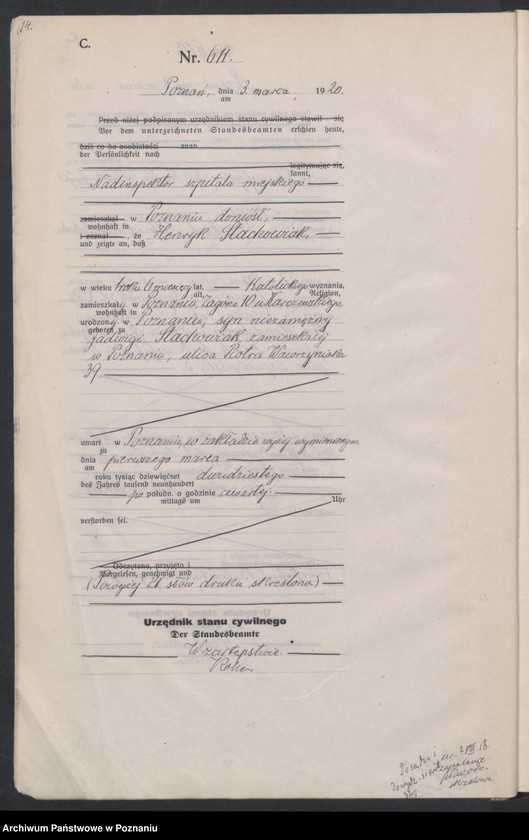 14.
C.
Nr. 611.
Poznań, dnia 3. marca 1920.
am
Przed niżej podpisanym urzędnikiem stanu cywilnego stawił się
Vor dem unterzeichneten Standesbeamten erschien heute,
dziś co do osobistości znan
der Persönlichkeit nach
legitymując się,
kannt,
Nadinspektor szpitala miejskiego
zamieszkał w Poznaniu doniósł,
wohnhaft in
i zeznał, że Henryk Stachowiak,
und zeigte an, daß
w wieku 6 miesięcy lat, katolickiego wyznania,
alt, Religion,
zamieszkały w Poznaniu, Zagórze 10 u
wohnhaft in
urodzony w Poznaniu, syn niezamężnej
geboren zu
Jadwigi Stachowiak, zamieszkałej
w Poznaniu, ulica Piotra Wawrzyniaka
39
umarł w Poznaniu, w zakładzie wyżej wymienionym
zu
dnia pierwszego marca
am
roku tysiąc dziewięćset dwudziestego
des Jahres tausend neunhundert
po połudn. o godzinie czwartej.
mittags um Uhr
verstorben sei.
Odczytano, przyjęto i
Vorgelesen, genehmigt und
(Powyżej 21 słów druku skreślono)
Urzędnik stanu cywilnego
Der Standesbeamte
W zastępstwie
Archiwum Państwowe w Poznaniu